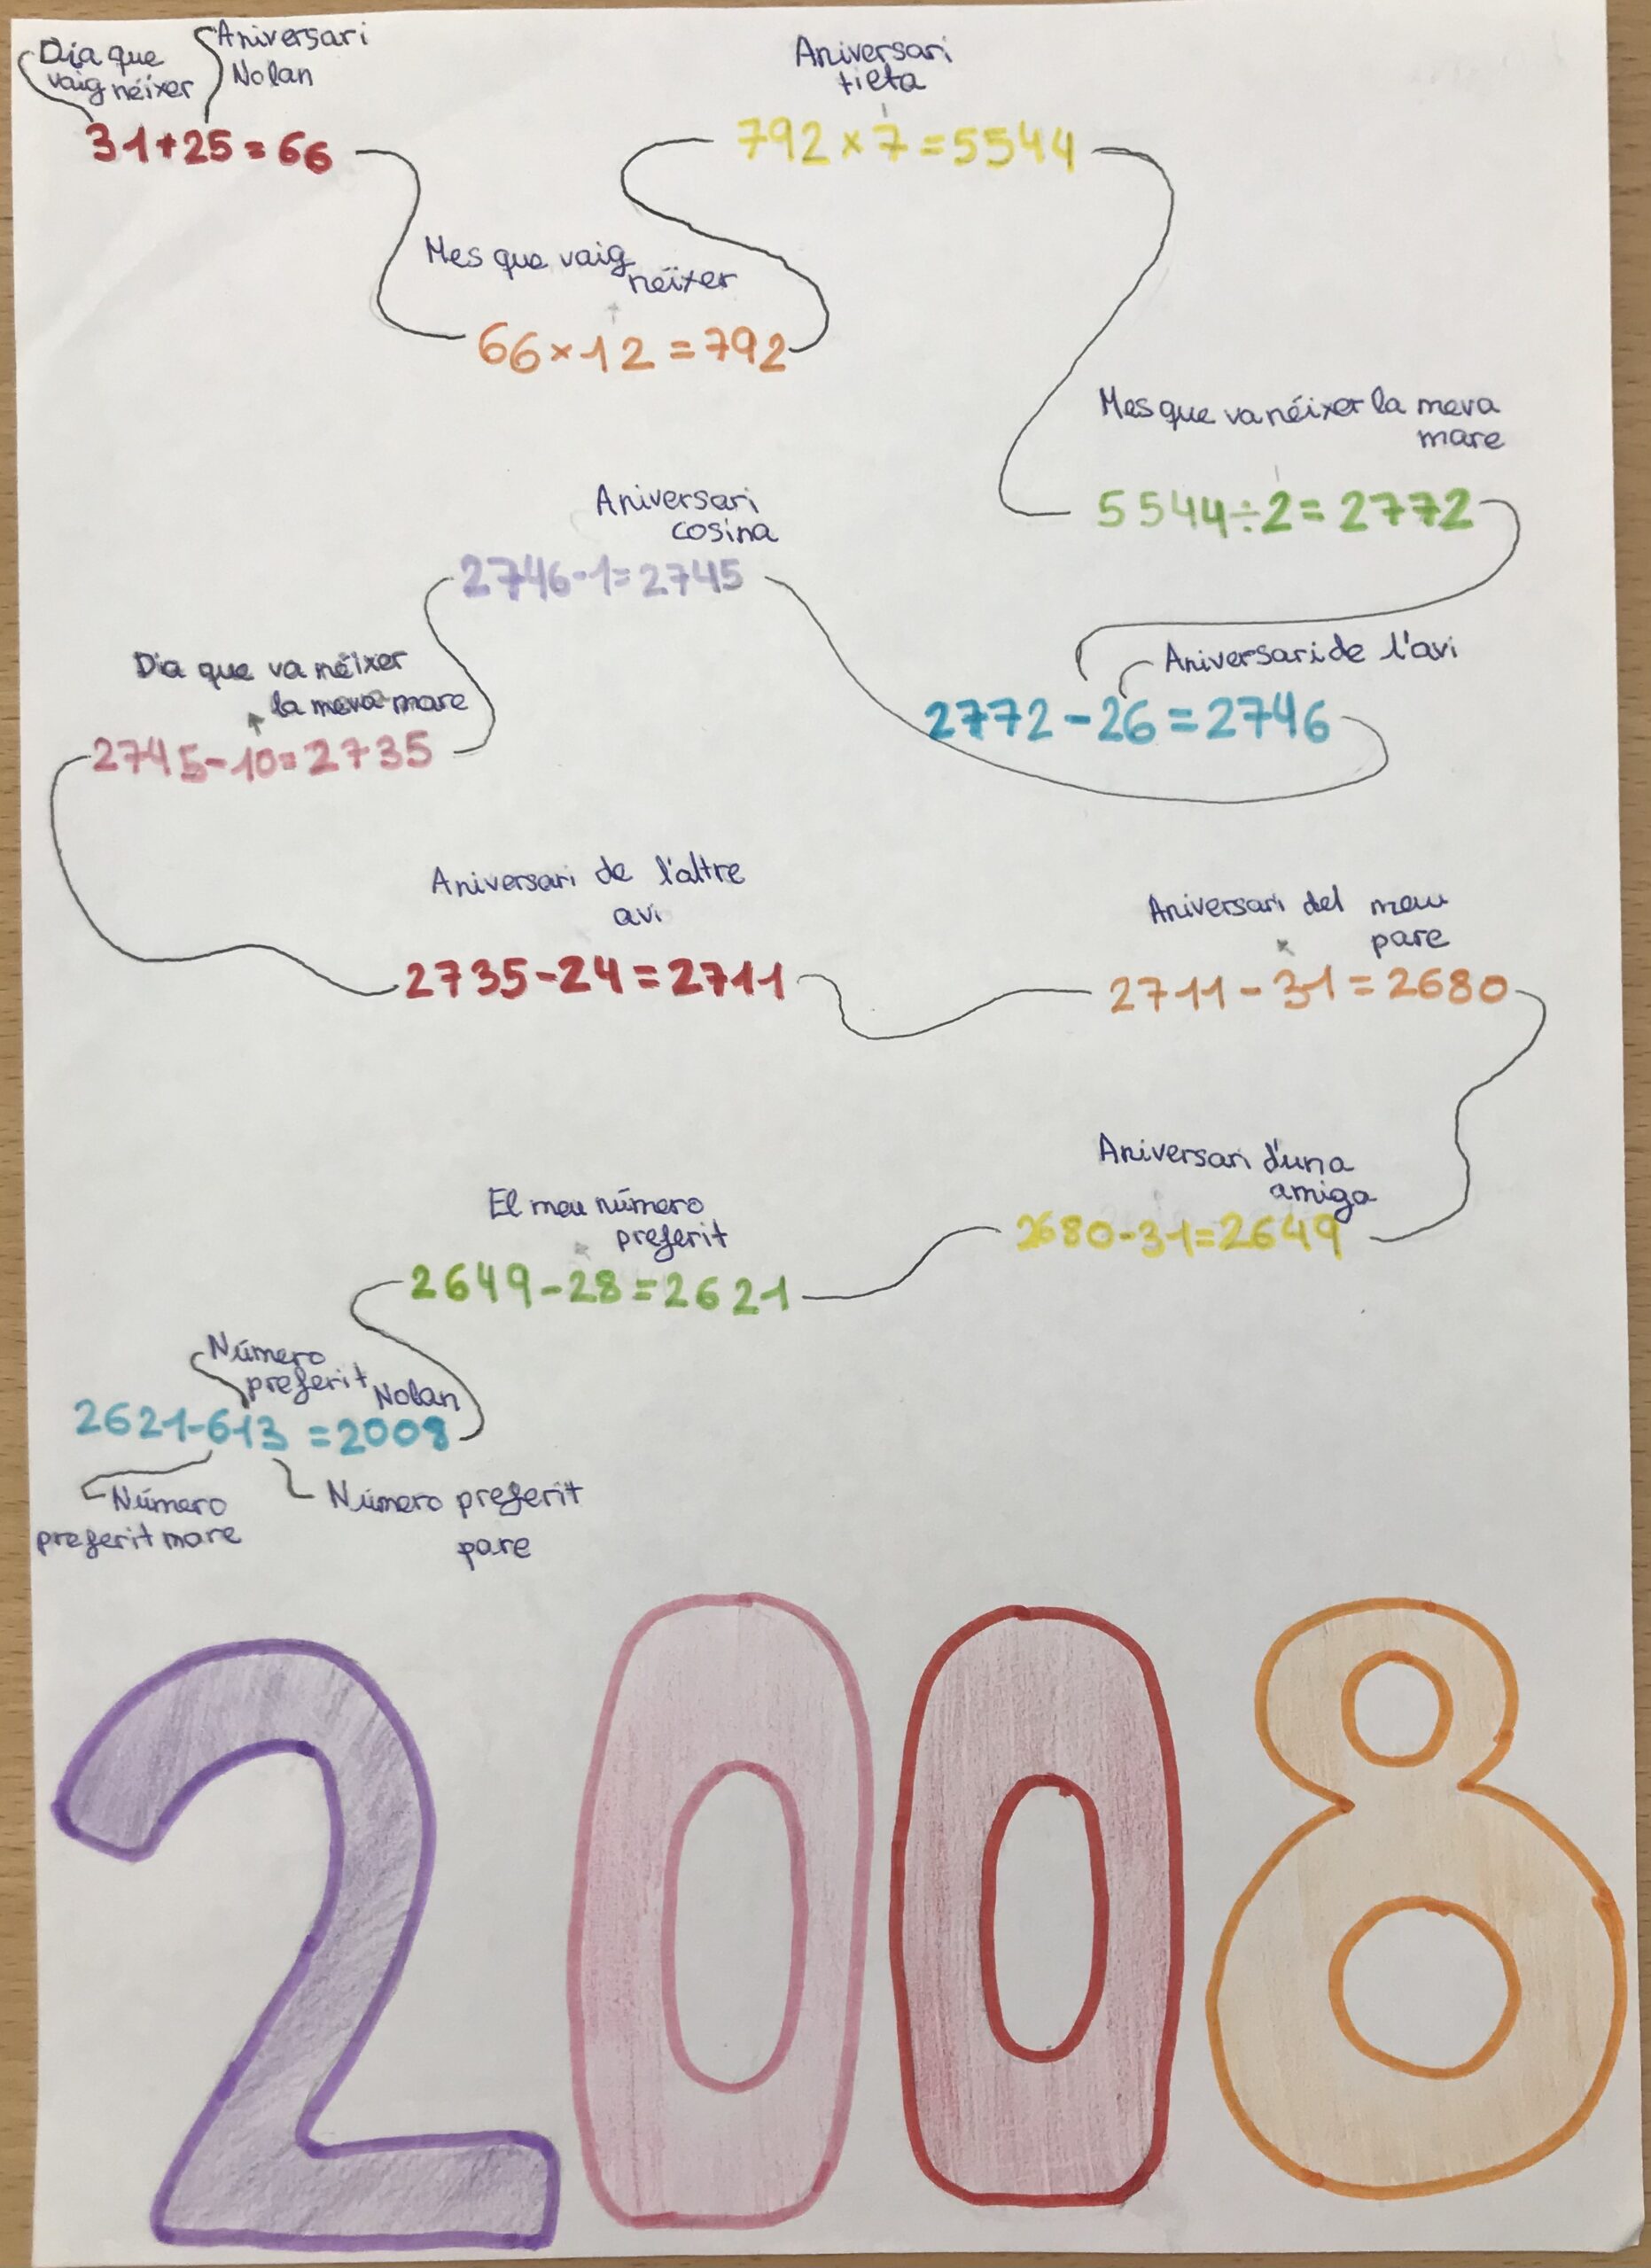 Dia que
vaig néixer
Aniversari
Nolan
31+25=66
Mes que vaig
néixer
66×12=792
Aniversari
tieta
792×7=5544
Mes que va néixer la meva
mare
5544÷2=2772
Aniversari de l'avi
2772-26=2746
Aniversari
cosina
2746-1=2745
Dia que va néixer
la meva mare
2745-10=2735
Aniversari de l'altre
avi
2735-24=2711
Aniversari del meu
pare
2711-31=2680
Aniversari d'una
amiga
2680-31=2649
El meu número
preferit
2649-28=2621
Número
preferit Nolan
2621-613=2008
Número
preferit mare
Número preferit
pare
2008